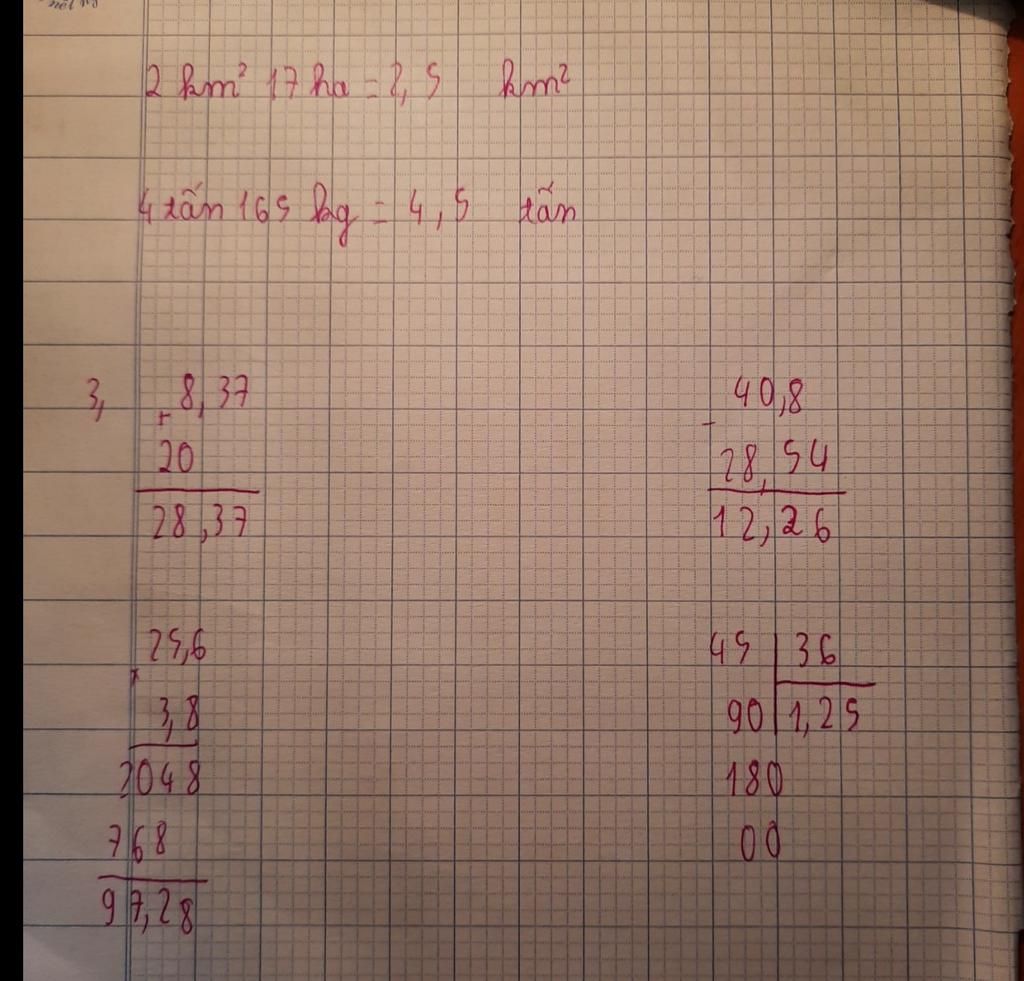 2 km² 17 ha = 2,5 km²
4 tấn 165 kg = 4,5 tấn
3,
8,37
+
20
28,37
40,8
-
28,54
12,26
25,6
x
3,8
2048
768
97,28
45 36
90 1,25
180
00